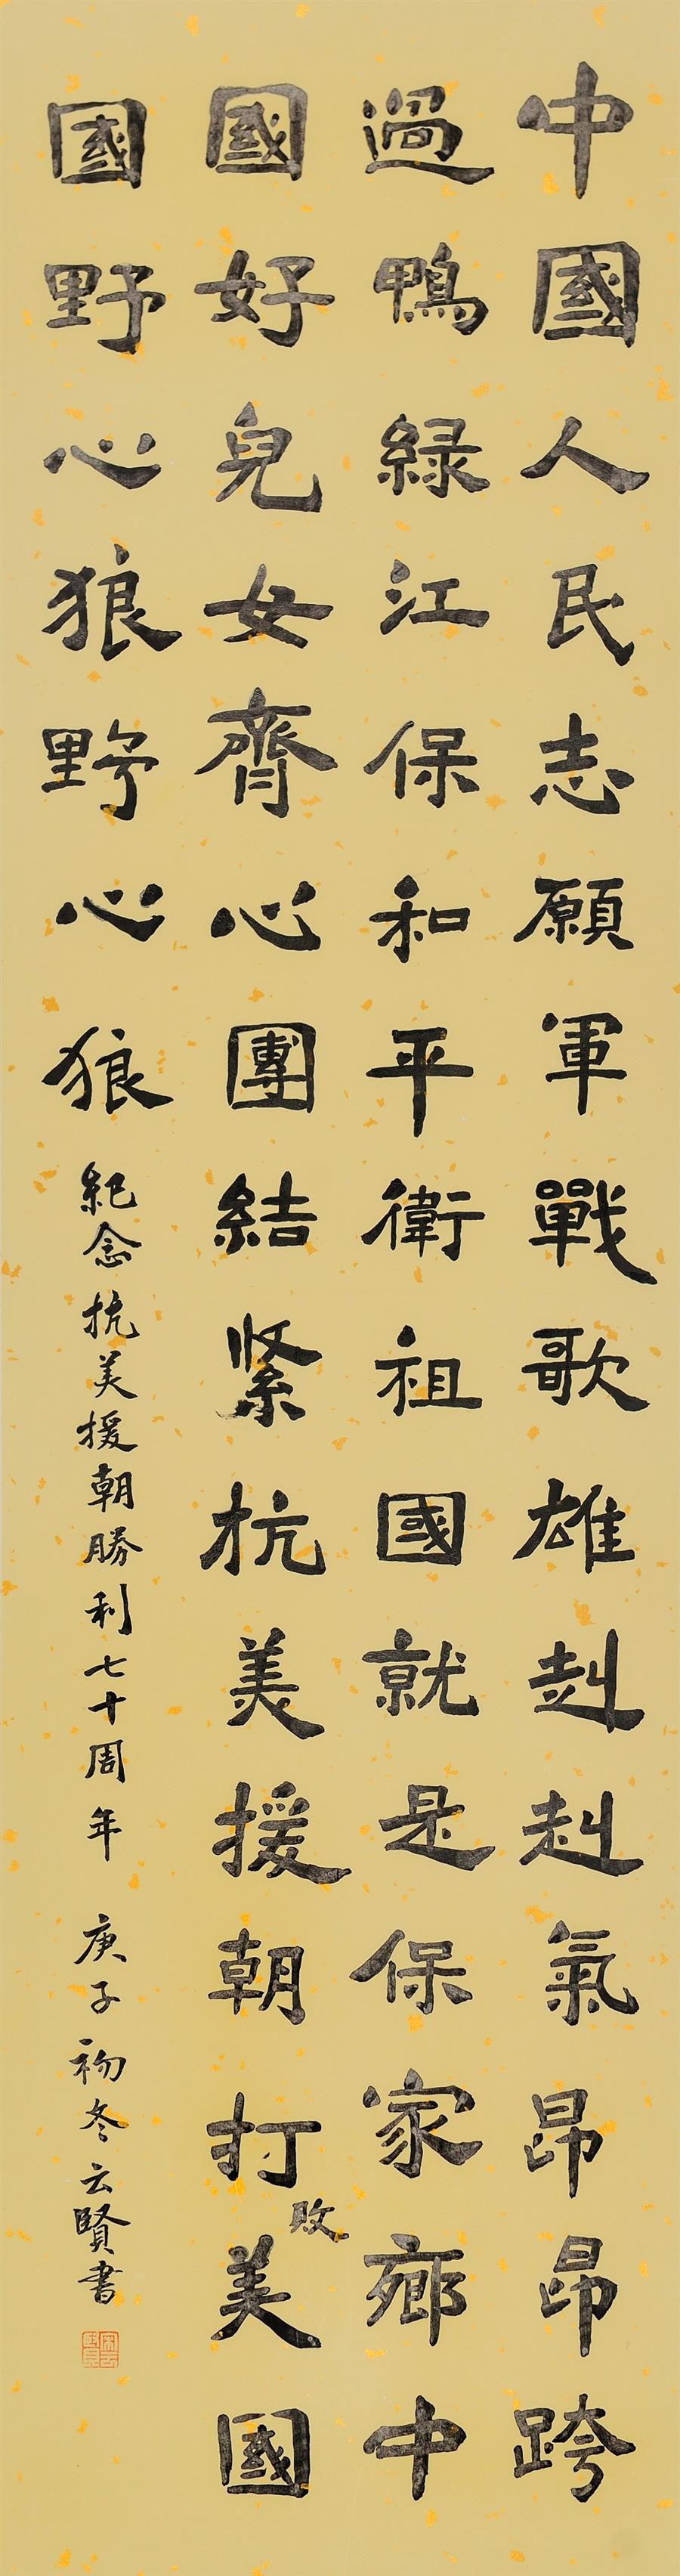 中國人民志願軍戰歌雄赳赳氣昂昂跨
過鴨緑江保和平衛祖國就是保家鄉中
國好兒女齊心團結緊抗美援朝打敗美國
國野心狼野心狼
紀念抗美援朝勝利七十周年 庚子初冬云賢書